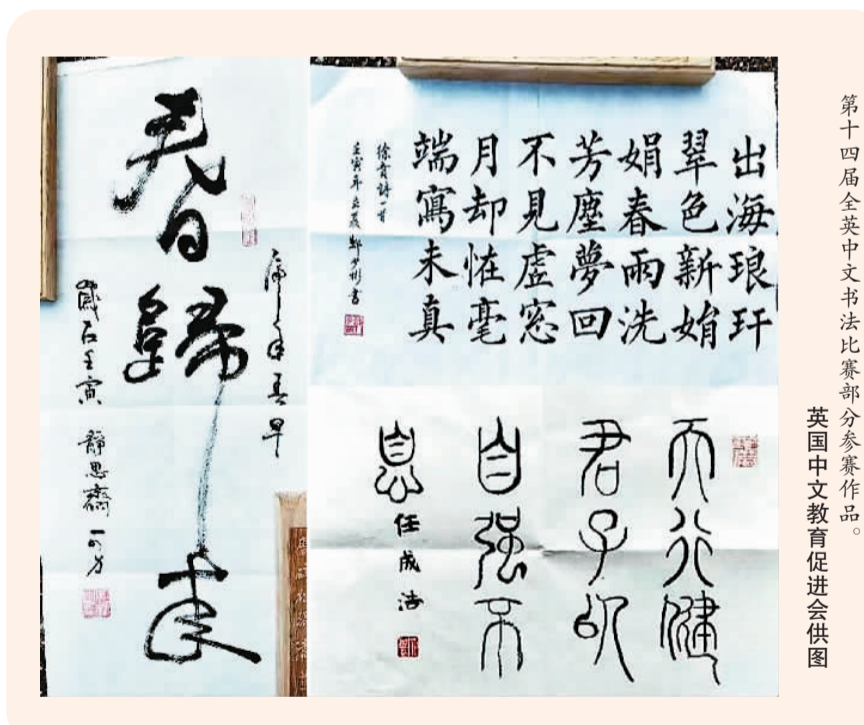 第十四届全英中文书法比赛部分参赛作品。
英国中文教育促进会供图
出海琅玕
翠色新娟
娟春雨洗
芳塵夢回
不見虛窓
月却恠毫
端寫未真
徐賁詩一首
壬寅年立夏 書
天行健
君子以
自强不
息
任成洁
虎年春早
春歸來
歲在壬寅 靜思齋